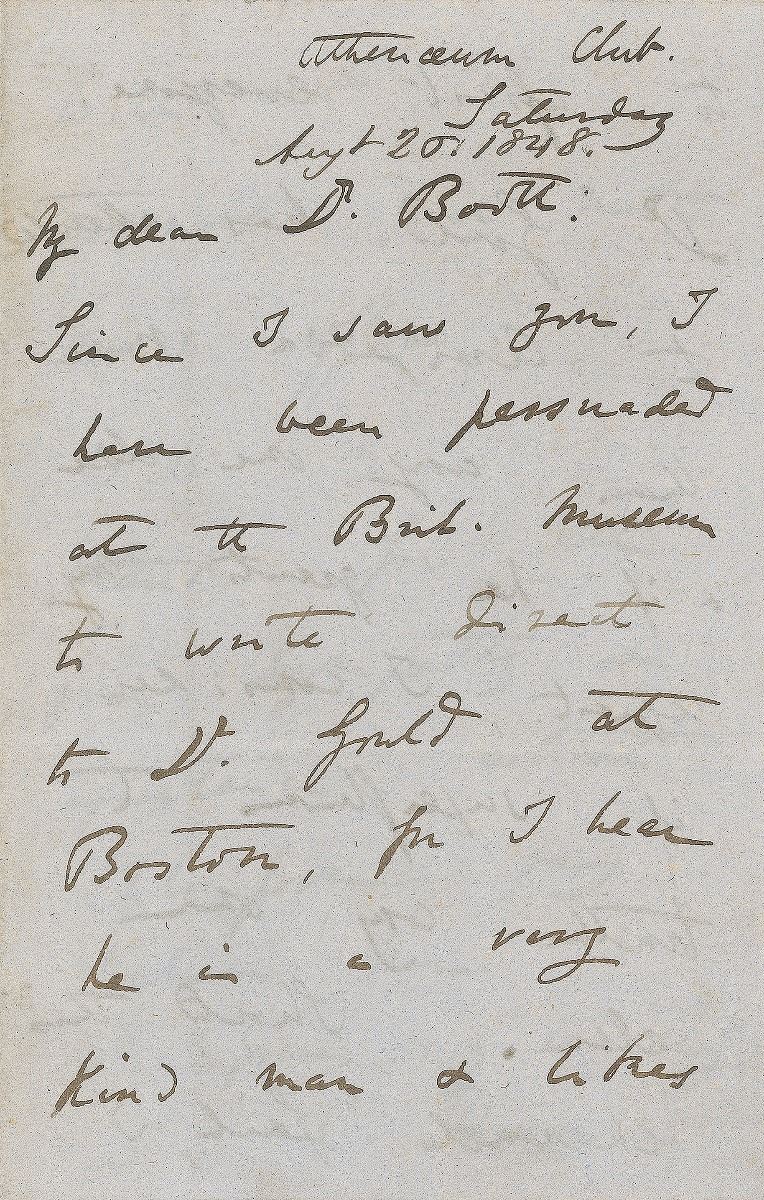 Athenæum Club.
Saturday
Augt 20. 1848.
My dear Dr. Boott.
Since I saw you, I
have been persuaded
at the Brit. Museum
to write direct
to Dr. Gould at
Boston, for I hear
he is a very
kind man & likes